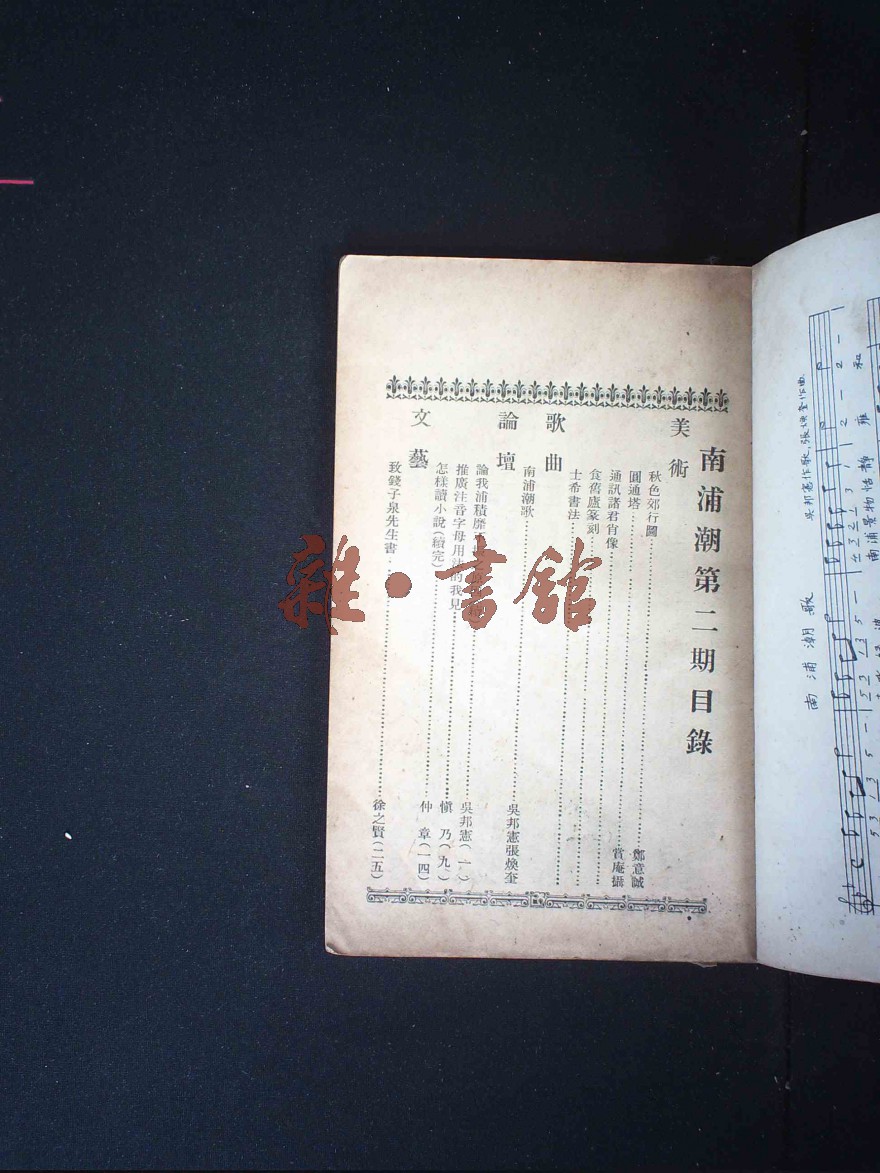 南浦潮第二期目錄
美術
秋色郊行圖 鄭意誠
圓通塔 賞庵攝
通訊諸君肖像
食舊廬篆刻
士希書法
歌曲
南浦潮歌 吳邦憲張煥奎
論壇
論我浦積靡 吳邦憲(一)
推廣注音字母用 的我見 慎乃(九)
怎樣讀小說(續完) 仲章(一四)
文藝
致錢子泉先生書 徐之賢(二五)
雜·書館
南浦潮歌
吳邦憲作歌,張煥奎作曲
南浦景物恬靜雍和